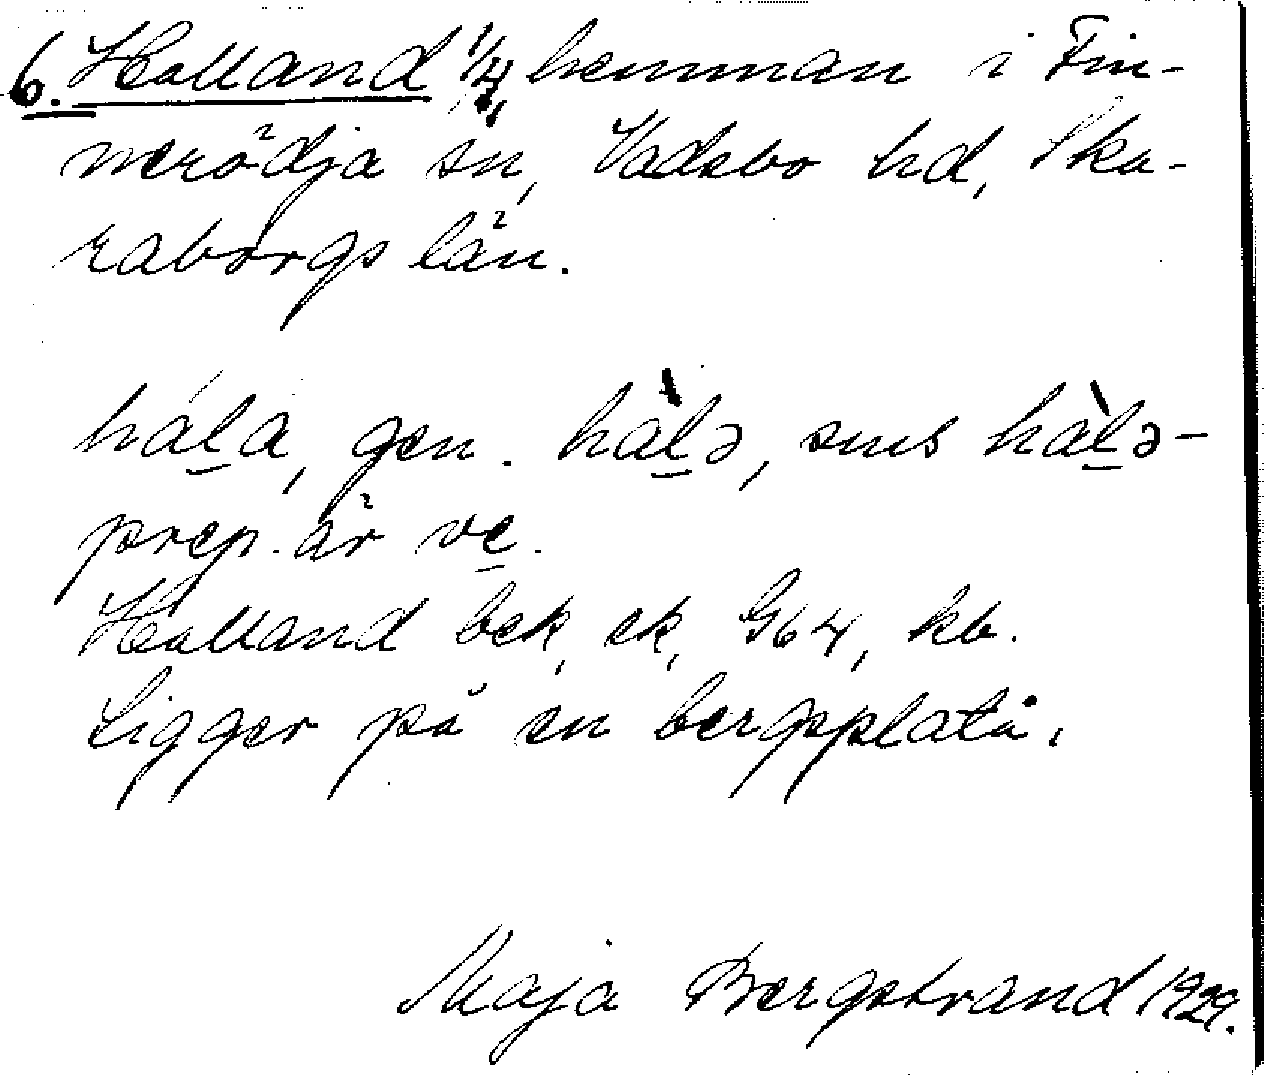 6. Halland 1/4 hemman i Fin-
nerödja sn, Vadsbo hd, Ska-
raborgs län.
háḻa, gen. hàḻə, sms hàḻə-
prep. är ve̱.
Halland bek, ek, G64, kb.
Ligger på en bergsplatå.
Maja Bergstrand 1929.